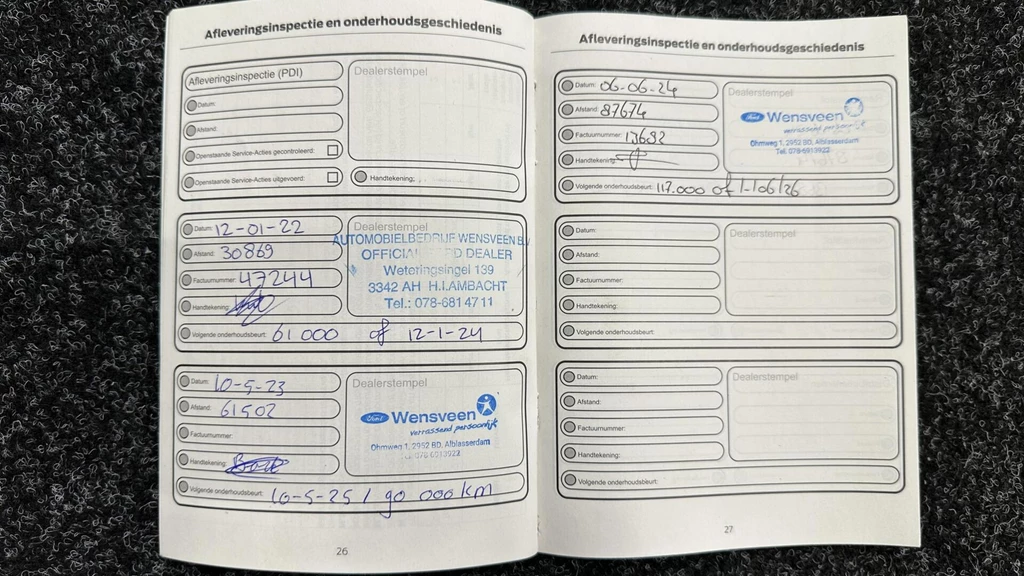 Afleveringsinspectie en onderhoudsgeschiedenis
Afleveringsinspectie (PDI)
Datum:
Afstand:
Openstaande Service-Acties gecontroleerd:
Openstaande Service-Acties uitgevoerd:
Dealerstempel
Handtekening:
Datum: 12-01-22
Afstand: 30869
Factuurnummer: 47244
Handtekening:
Dealerstempel
AUTOMOBIELBEDRIJF WENSVEEN B.V.
OFFICIAL DEALER
Weteringsingel 139
3342 AH H.I.AMBACHT
Tel.: 078-681 47 11
Volgende onderhoudsbeurt: 61 000 of 12-1-24
Datum: 10-5-23
Afstand: 61502
Factuurnummer:
Handtekening:
Dealerstempel
Ford Wensveen
verrassend persoonlijk
Ohmweg 1, 2952 BD, Alblasserdam
Tel. 078 6913922
Volgende onderhoudsbeurt: 10-5-25 / 90 000 km
26
Afleveringsinspectie en onderhoudsgeschiedenis
Datum: 06-06-24
Afstand: 87674
Factuurnummer: 13682
Handtekening:
Dealerstempel
Ford Wensveen
verrassend persoonlijk
Ohmweg 1, 2952 BD, Alblasserdam
Tel. 078-6913922
Volgende onderhoudsbeurt: 117.000 of 1-106/26
Datum:
Afstand:
Factuurnummer:
Handtekening:
Dealerstempel
Volgende onderhoudsbeurt:
Datum:
Afstand:
Factuurnummer:
Handtekening:
Dealerstempel
Volgende onderhoudsbeurt:
27